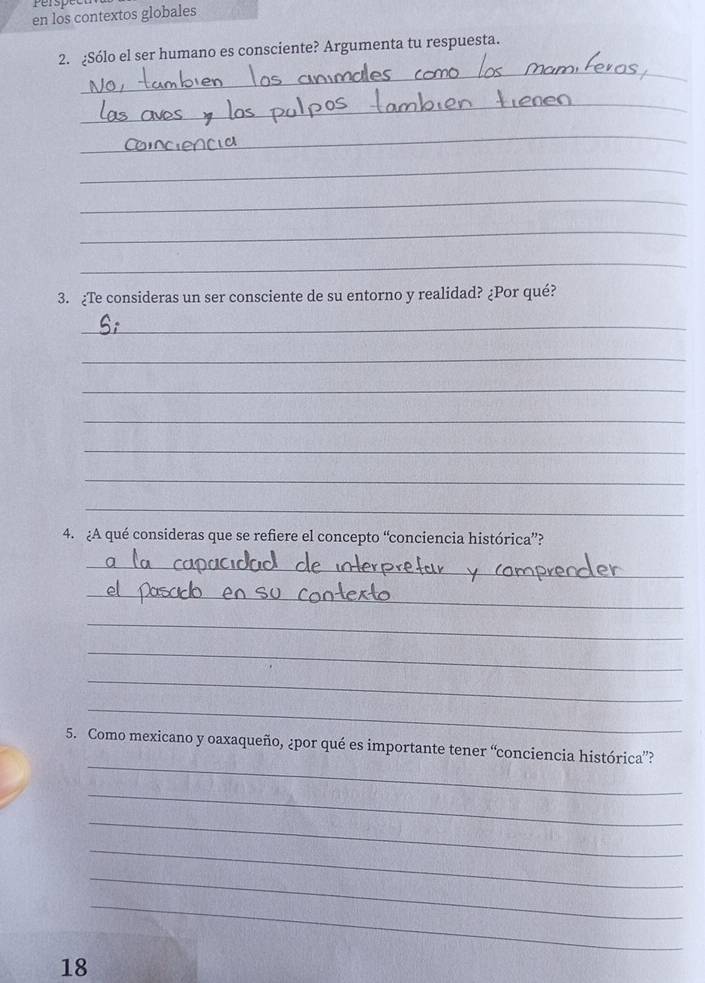 en los contextos globales
2. ¿Sólo el ser humano es consciente? Argumenta tu respuesta.
No, tambien los animales como los mamiferos,
las aves y los pulpos tambien tienen
coinciencia
3. ¿Te consideras un ser consciente de su entorno y realidad? ¿Por qué?
Si
4. ¿A qué consideras que se refiere el concepto “conciencia histórica”?
a la capacidad de interpretar y comprender
el pasado en su contexto
5. Como mexicano y oaxaqueño, ¿por qué es importante tener “conciencia histórica”?
18